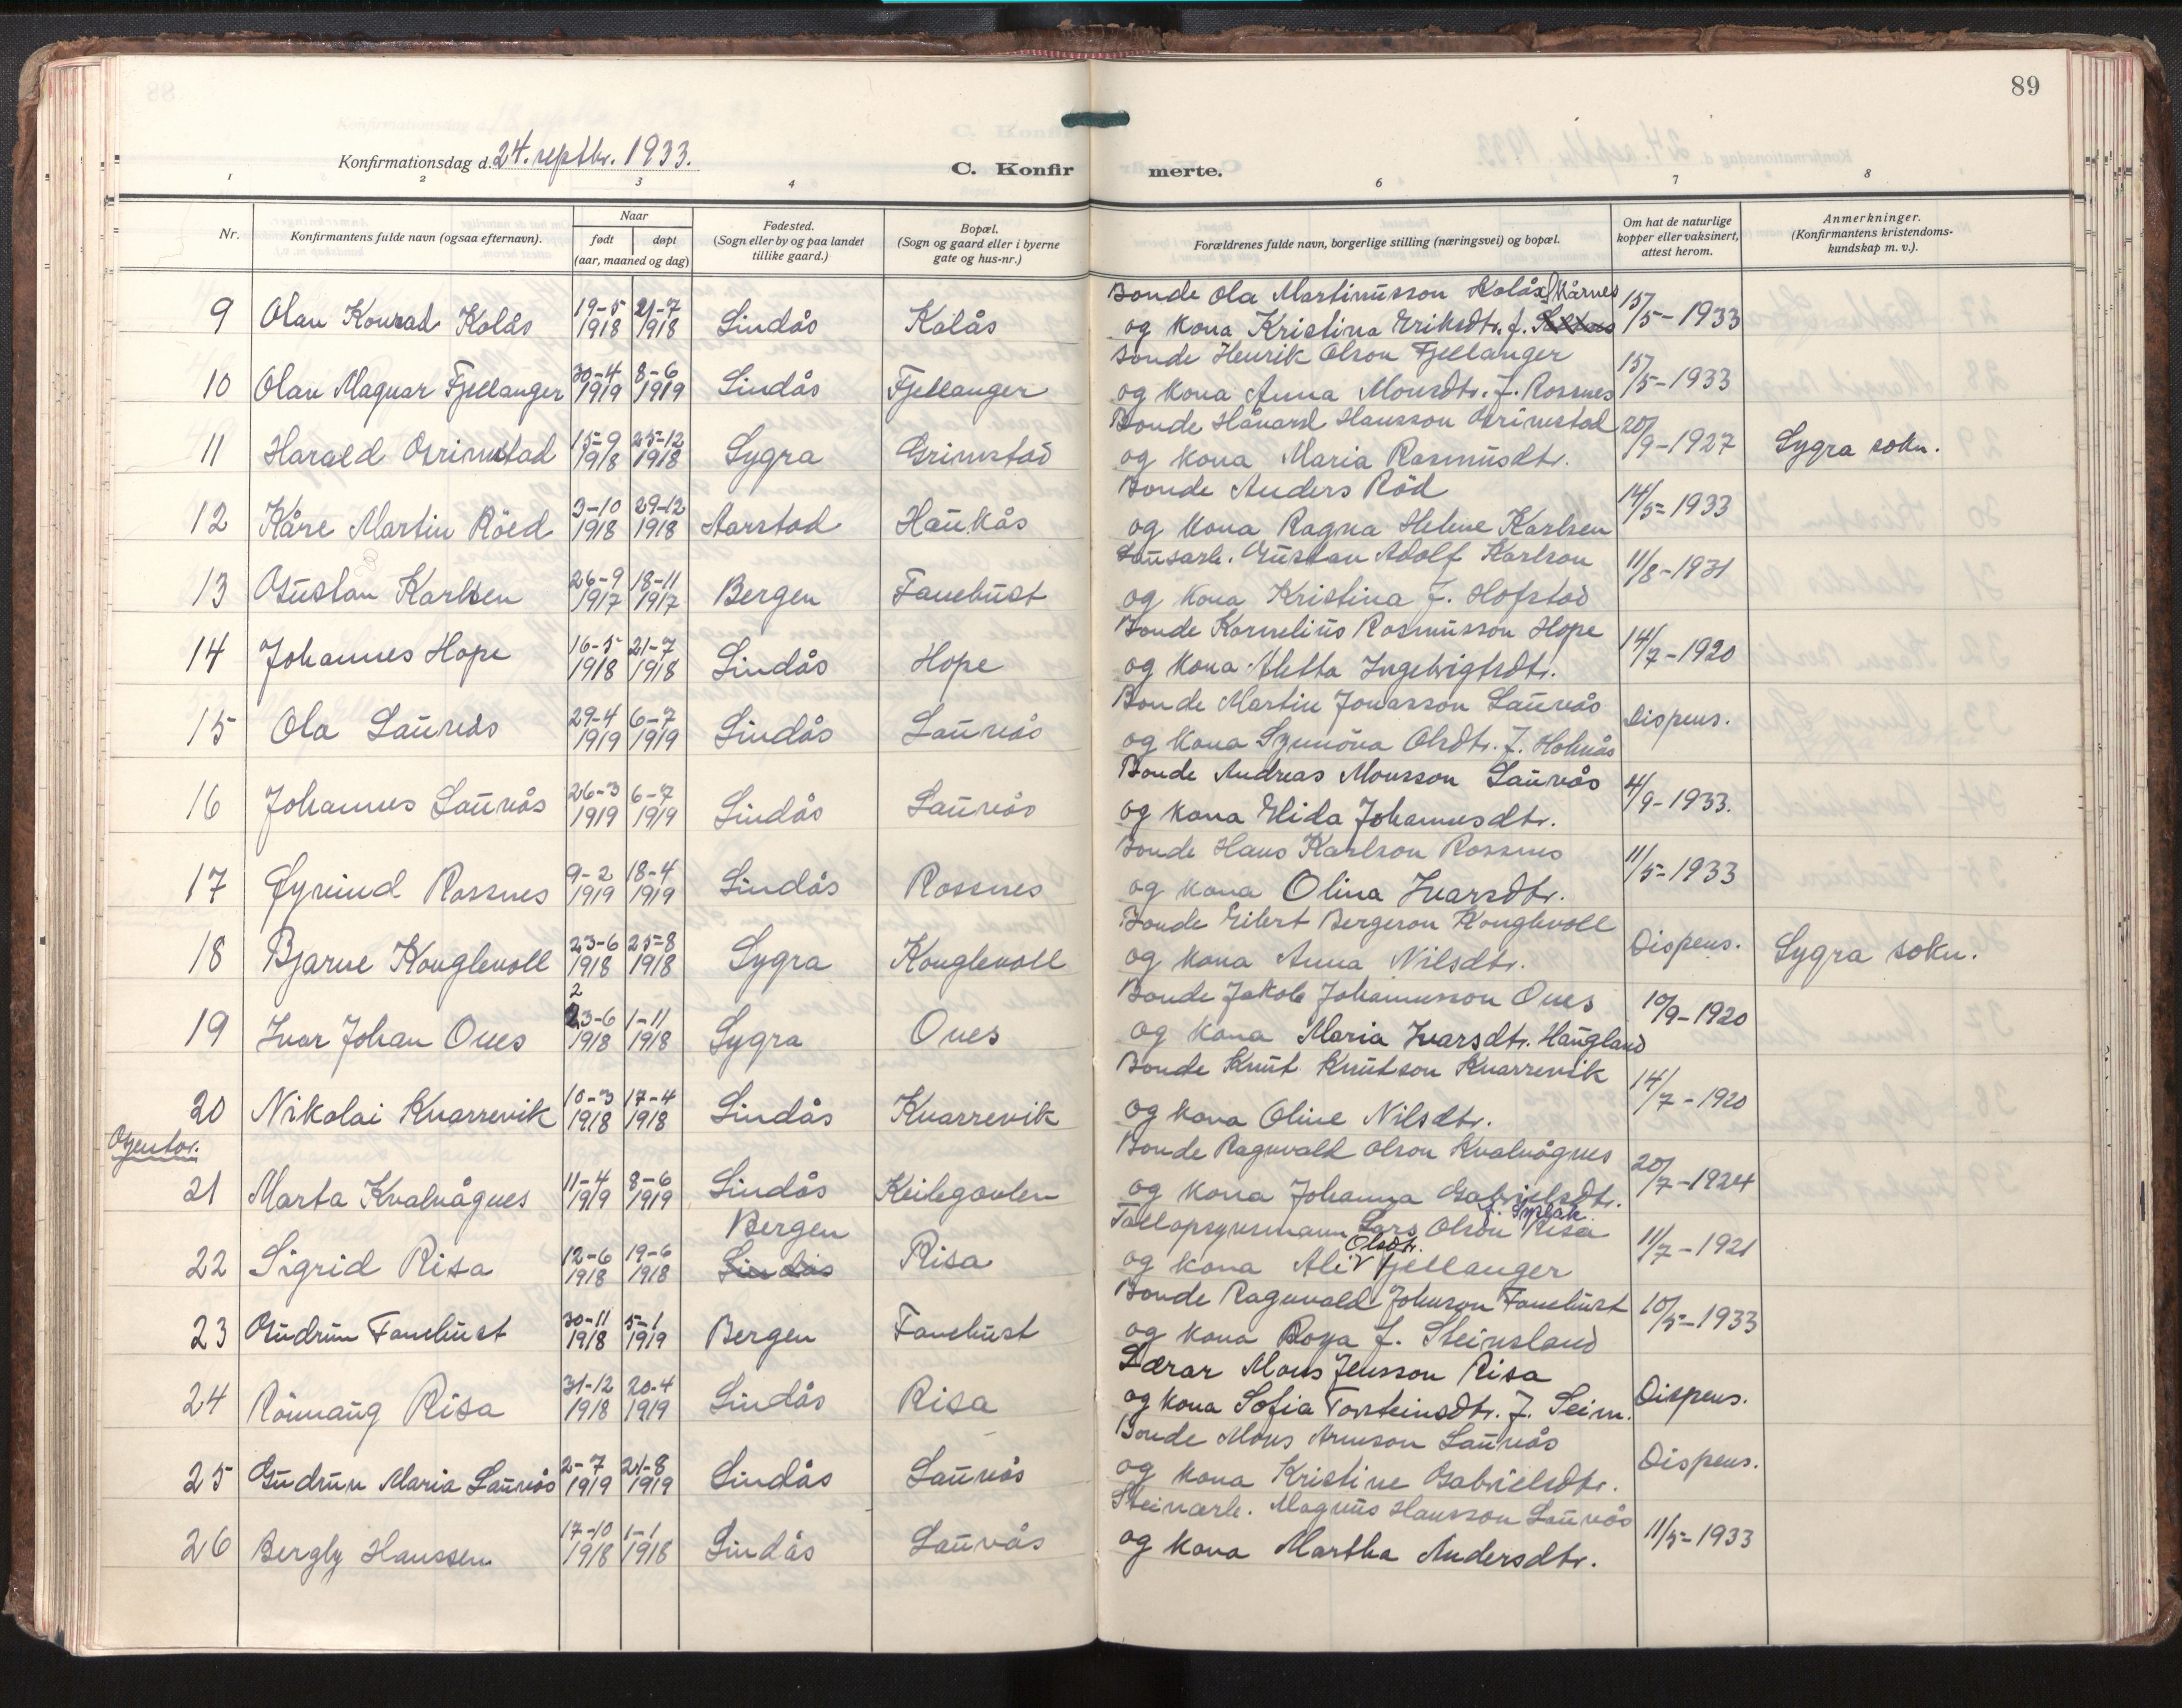 89
Konfirmationsdag d. 24. septbr. 1933.
C. Konfirmerte.
1 2 3 4 6 7 8
Nr. Konfirmantens fulde navn (ogsaa efternavn). Naar født døpt (aar, maaned og dag) Fødested. (Sogn eller by og paa landet tillike gaard.) Bopæl. (Sogn og gaard eller i byerne gate og hus-nr.) Forældrenes fulde navn, borgerlige stilling (næringsvei) og bopæl. Om hat de naturlige kopper eller vaksinert, attest herom. Anmerkninger. (Konfirmantens kristendomskundskap m. v.).
9 Olav Konrad Kolås 19-5 1918 21-7 1918 Lindås Kolås Bonde Ola Martinusson Kolås 15/5-1933
og kona Kristina Eriksdtr. f. Skårnes
10 Olav Magnar Fjellanger 30-4 1919 8-6 1919 Lindås Fjellanger Bonde Henrik Olson Fjellanger 15/5-1933
og kona Anna Monsdtr. f. Rossnes
11 Harald Grimstad 15-9 1918 25-12 1918 Lygra Grimstad Bonde Håvard Hansson Grimstad 20/9-1927 Lygra sokn.
og kona Maria Rasmusdtr.
12 Kåre Martin Röed 3-10 1918 29-12 1918 Aarstad Haukås Bonde Anders Röd 14/5-1933
og kona Ragna Helene Karlsen
13 Gustav Karlsen 26-9 1917 18-11 1917 Bergen Fanebust Lausarb. Gustav Adolf Karlson 11/8-1931
og kona Kristina f. Hofstad
14 Johannes Hope 16-5 1918 21-7 1918 Lindås Hope Bonde Kornelius Rasmusson Hope 14/7-1920
og kona Aletta Ingebrigtsdtr.
15 Ola Laurås 29-4 1919 6-7 1919 Lindås Laurås Bonde Martin Jonasson Laurås Dispens.
og kona Synnöva Olsdtr. f. Holmås
16 Johannes Laurås 26-3 1919 6-7 1919 Lindås Laurås Bonde Andreas Monsson Laurås 4/9-1933.
og kona Elida Johannesdtr.
17 Øyvind Rossnes 9-2 1919 18-4 1919 Lindås Rossnes Bonde Hans Karlson Rossnes 11/5-1933
og kona Olina Ivarsdtr.
18 Bjarne Konglevoll 23-6 1918 25-8 1918 Lygra Konglevoll Bonde Eilert Bergeson Konglevoll Dispens. Lygra sokn.
og kona Anna Nilsdtr.
19 Ivar Johan Ones 23-6 1918 1-11 1918 Lygra Ones Bonde Jakob Johannesson Ones 10/9-1920
og kona Maria Ivarsdtr. Haugland
20 Nikolai Knarrevik 10-3 1918 17-4 1918 Lindås Knarrevik Bonde Knut Knutson Knarrevik 14/7-1920
og kona Oline Nilsdtr.
Gjentor.
21 Marta Kvalvågnes 11-4 1919 8-6 1919 Lindås Keilegavlen Bonde Ragnvald Olson Kvalvågnes 20/7-1924
og kona Johanna Gabrielsdtr.
22 Sigrid Risa 12-6 1918 19-6 1918 Bergen Lindås Risa Tallopsynsmann Lars Olson Risa 11/7-1921
og kona Ali Olsdtr. Fjellanger
23 Gudrun Fanebust 30-11 1918 5-1 1919 Bergen Fanebust Bonde Ragnvald Johnson Fanebust 10/5-1933
og kona Roga f. Steinsland
24 Rönnaug Risa 31-12 1918 20-4 1919 Lindås Risa Lærar Mons Jensson Risa Dispens.
og kona Sofia Torsteinsdtr. f. Seim.
25 Gudrun Maria Laurås 2-7 1919 21-8 1919 Lindås Laurås Bonde Mons Arneson Laurås Dispens.
og kona Kristine Gabrielsdtr.
26 Bergly Hanssen 17-10 1918 1-1 1918 Lindås Laurås Steinarb. Magnus Hansson Laurås 11/5-1933
og kona Martha Andersdtr.